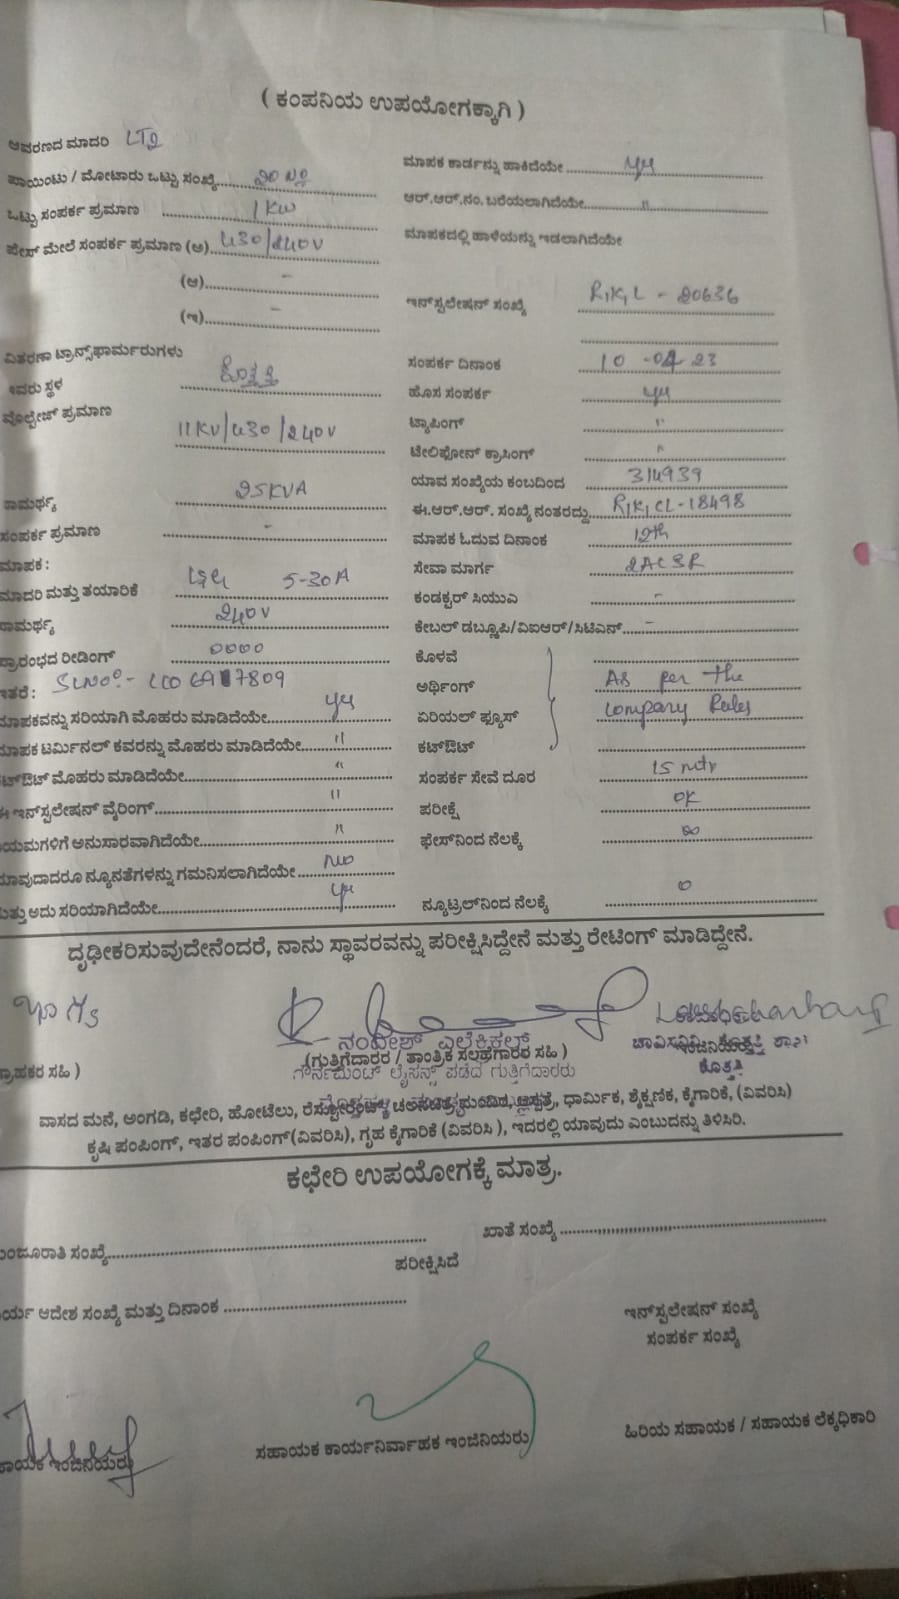 ( ಕಂಪನಿಯ ಉಪಯೋಗಕ್ಕಾಗಿ )
ಆವರಣದ ಮಾದರಿ LT2
ಪಾಯಿಂಟು / ಮೋಟಾರು ಒಟ್ಟು ಸಂಖ್ಯೆ
ಒಟ್ಟು ಸಂಪರ್ಕ ಪ್ರಮಾಣ 1 KW
ಫೇಸ್ ಮೇಲೆ ಸಂಪರ್ಕ ಪ್ರಮಾಣ (ಅ) 430/240V
(ಆ) -
(ಇ) -
ವಿತರಣಾ ಟ್ರಾನ್ಸ್‌ಫಾರ್ಮರುಗಳು
ಇವರು ಸ್ಥಳ ಕೊತ್ತತ್ತಿ
ವೊಲ್ಟೇಜ್ ಪ್ರಮಾಣ
11KV/430/240V
ಸಾಮರ್ಥ್ಯ 25KVA
ಸಂಪರ್ಕ ಪ್ರಮಾಣ -
ಮಾಪಕ :
ಮಾದರಿ ಮತ್ತು ತಯಾರಿಕೆ 5-30A
ಸಾಮರ್ಥ್ಯ 240V
ಪ್ರಾರಂಭದ ರೀಡಿಂಗ್ 0000
ಇತರೆ : SLNO:-
ಮಾಪಕವನ್ನು ಸರಿಯಾಗಿ ಮೊಹರು ಮಾಡಿದೆಯೇ yes
ಮಾಪಕ ಟರ್ಮಿನಲ್ ಕವರನ್ನು ಮೊಹರು ಮಾಡಿದೆಯೇ "
ಕಟ್‌ಔಟ್ ಮೊಹರು ಮಾಡಿದೆಯೇ "
ಈ ಇನ್‌ಸ್ಟಲೇಷನ್ ವೈರಿಂಗ್ "
ನಿಯಮಗಳಿಗೆ ಅನುಸಾರವಾಗಿದೆಯೇ "
ಯಾವುದಾದರೂ ನ್ಯೂನತೆಗಳನ್ನು ಗಮನಿಸಲಾಗಿದೆಯೇ No
ಮತ್ತು ಅದು ಸರಿಯಾಗಿದೆಯೇ yes
ಮಾಪಕ ಕಾರ್ಡನ್ನು ಹಾಕಿದೆಯೇ yes
ಆರ್.ಆರ್.ನಂ. ಬರೆಯಲಾಗಿದೆಯೇ "
ಮಾಪಕದಲ್ಲಿ ಹಾಳೆಯನ್ನು ಇಡಲಾಗಿದೆಯೇ
ಇನ್‌ಸ್ಟಲೇಷನ್ ಸಂಖ್ಯೆ R,K,L - 20636
ಸಂಪರ್ಕ ದಿನಾಂಕ 10-04-23
ಹೊಸ ಸಂಪರ್ಕ yes
ಟ್ಯಾಪಿಂಗ್ "
ಟೆಲಿಫೋನ್ ಕ್ರಾಸಿಂಗ್ "
ಯಾವ ಸಂಖ್ಯೆಯ ಕಂಬದಿಂದ 314939
ಈ.ಆರ್.ಆರ್. ಸಂಖ್ಯೆ ನಂತರದ್ದು R,K,CL-18498
ಮಾಪಕ ಓದುವ ದಿನಾಂಕ 12th
ಸೇವಾ ಮಾರ್ಗ 2ACSR
ಕಂಡಕ್ಟರ್ ಸಿಯುಎ -
ಕೇಬಲ್ ಡಬ್ಲ್ಯೂಪಿ/ವಿಐಆರ್/ಸಿಟಿಎಸ್ -
ಕೊಳವೆ
ಅರ್ಥಿಂಗ್ As per the
ಏರಿಯಲ್ ಫ್ಯೂಸ್ Company Rules
ಕಟ್‌ಔಟ್
ಸಂಪರ್ಕ ಸೇವೆ ದೂರ 15 mtr
ಪರೀಕ್ಷೆ OK
ಫೇಸ್‌ನಿಂದ ನೆಲಕ್ಕೆ ∞
ನ್ಯೂಟ್ರಲ್‌ನಿಂದ ನೆಲಕ್ಕೆ 0
ದೃಢೀಕರಿಸುವುದೇನೆಂದರೆ, ನಾನು ಸ್ಥಾವರವನ್ನು ಪರೀಕ್ಷಿಸಿದ್ದೇನೆ ಮತ್ತು ರೇಟಿಂಗ್ ಮಾಡಿದ್ದೇನೆ.
ನಂದೀಶ್ ಎಲೆಕ್ಟ್ರಿಕಲ್ಸ್
ಗ್ರಾಹಕರ ಸಹಿ )
(ಗುತ್ತಿಗೆದಾರರ / ತಾಂತ್ರಿಕ ಸಲಹೆಗಾರರ ಸಹಿ )
ಗೌರ್ನಮೆಂಟ್ ಲೈಸನ್ಸ್ ಪಡೆದ ಗುತ್ತಿಗೆದಾರರು
ಕೊತ್ತತ್ತಿ
ವಾಸದ ಮನೆ, ಅಂಗಡಿ, ಕಛೇರಿ, ಹೋಟೆಲು, ರೆಸ್ಟೋರೆಂಟ್, ಚಲನಚಿತ್ರ ಮಂದಿರ, ಆಸ್ಪತ್ರೆ, ಧಾರ್ಮಿಕ, ಶೈಕ್ಷಣಿಕ, ಕೈಗಾರಿಕೆ, (ವಿವರಿಸಿ)
ಕೃಷಿ ಪಂಪಿಂಗ್, ಇತರ ಪಂಪಿಂಗ್(ವಿವರಿಸಿ), ಗೃಹ ಕೈಗಾರಿಕೆ (ವಿವರಿಸಿ ), ಇದರಲ್ಲಿ ಯಾವುದು ಎಂಬುದನ್ನು ತಿಳಿಸಿರಿ.
ಕಛೇರಿ ಉಪಯೋಗಕ್ಕೆ ಮಾತ್ರ.
ಮಂಜೂರಾತಿ ಸಂಖ್ಯೆ
ಖಾತೆ ಸಂಖ್ಯೆ
ಪರೀಕ್ಷಿಸಿದೆ
ಕಾರ್ಯ ಆದೇಶ ಸಂಖ್ಯೆ ಮತ್ತು ದಿನಾಂಕ
ಇನ್‌ಸ್ಟಲೇಷನ್ ಸಂಖ್ಯೆ
ಸಂಪರ್ಕ ಸಂಖ್ಯೆ
ಸಹಾಯಕ ಇಂಜಿನಿಯರು
ಸಹಾಯಕ ಕಾರ್ಯನಿರ್ವಾಹಕ ಇಂಜಿನಿಯರು
ಹಿರಿಯ ಸಹಾಯಕ / ಸಹಾಯಕ ಲೆಕ್ಕಧಿಕಾರಿ